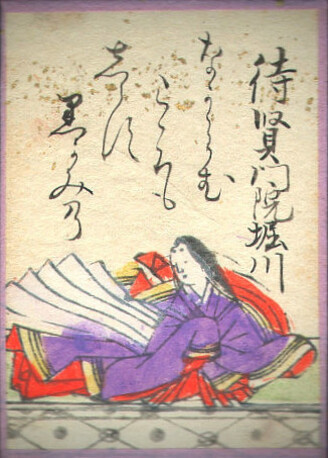 待賢門院堀川
なかゝらむ
こゝろも
志らす
黒かみ乃